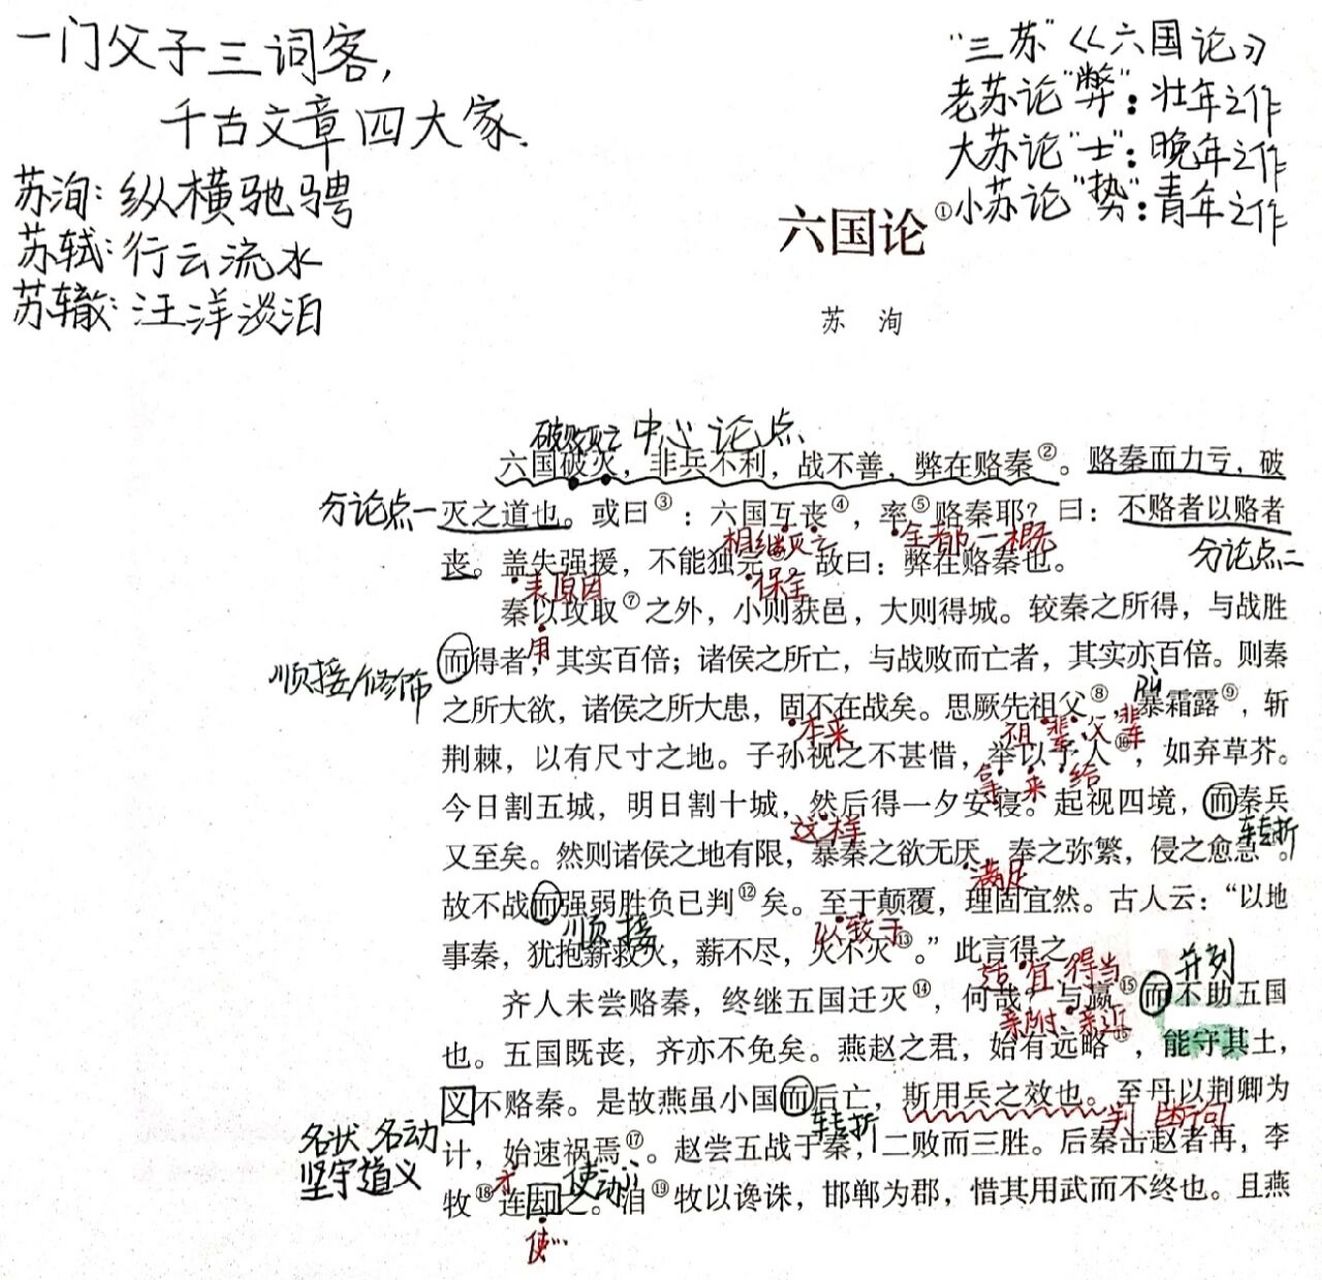 一门父子三词客,
千古文章四大家.
苏洵:纵横驰骋
苏轼:行云流水
苏辙:汪洋淡泊
"三苏"《六国论》
老苏论"弊":壮年之作
大苏论"士":晚年之作
小苏论"势":青年之作
六国论①
苏 洵
破败灭亡 中心论点
六国破灭，非兵不利，战不善，弊在赂秦②。赂秦而力亏，破
分论点一
灭之道也。或曰③：六国互丧④，率⑤赂秦耶？曰：不赂者以赂者
相继灭亡 全都一概
分论点二
丧。盖失强援，不能独完。故曰：弊在赂秦也。
表原因 保全
秦以攻取⑦之外，小则获邑，大则得城。较秦之所得，与战胜
用
顺接/修饰
而得者，其实百倍；诸侯之所亡，与战败而亡者，其实亦百倍。则秦
之所大欲，诸侯之所大患，固不在战矣。思厥先祖父⑧，暴霜露⑨，斩
本来 祖辈父辈
荆棘，以有尺寸之地。子孙视之不甚惜，举以予人⑩，如弃草芥。
拿 来 给
今日割五城，明日割十城，然后得一夕安寝。起视四境，而秦兵
这样 转折
又至矣。然则诸侯之地有限，暴秦之欲无厌，奉之弥繁，侵之愈急。
满足
故不战而强弱胜负已判⑫矣。至于颠覆，理固宜然。古人云：“以地
顺接 以致于
事秦，犹抱薪救火，薪不尽，火不灭⑬。”此言得之。
适宜 得当
并列
齐人未尝赂秦，终继五国迁灭⑭，何哉？与嬴⑮而不助五国
亲附·亲近
也。五国既丧，齐亦不免矣。燕赵之君，始有远略⑯，能守其土，
义不赂秦。是故燕虽小国而后亡，斯用兵之效也。至丹以荆卿为
转折 判断句
名状 名动
坚守道义
计，始速祸焉⑰。赵尝五战于秦，二败而三胜。后秦击赵者再，李
才 使动
牧⑱连却之。洎⑲牧以谗诛，邯郸为郡，惜其用武而不终也。且燕
使…